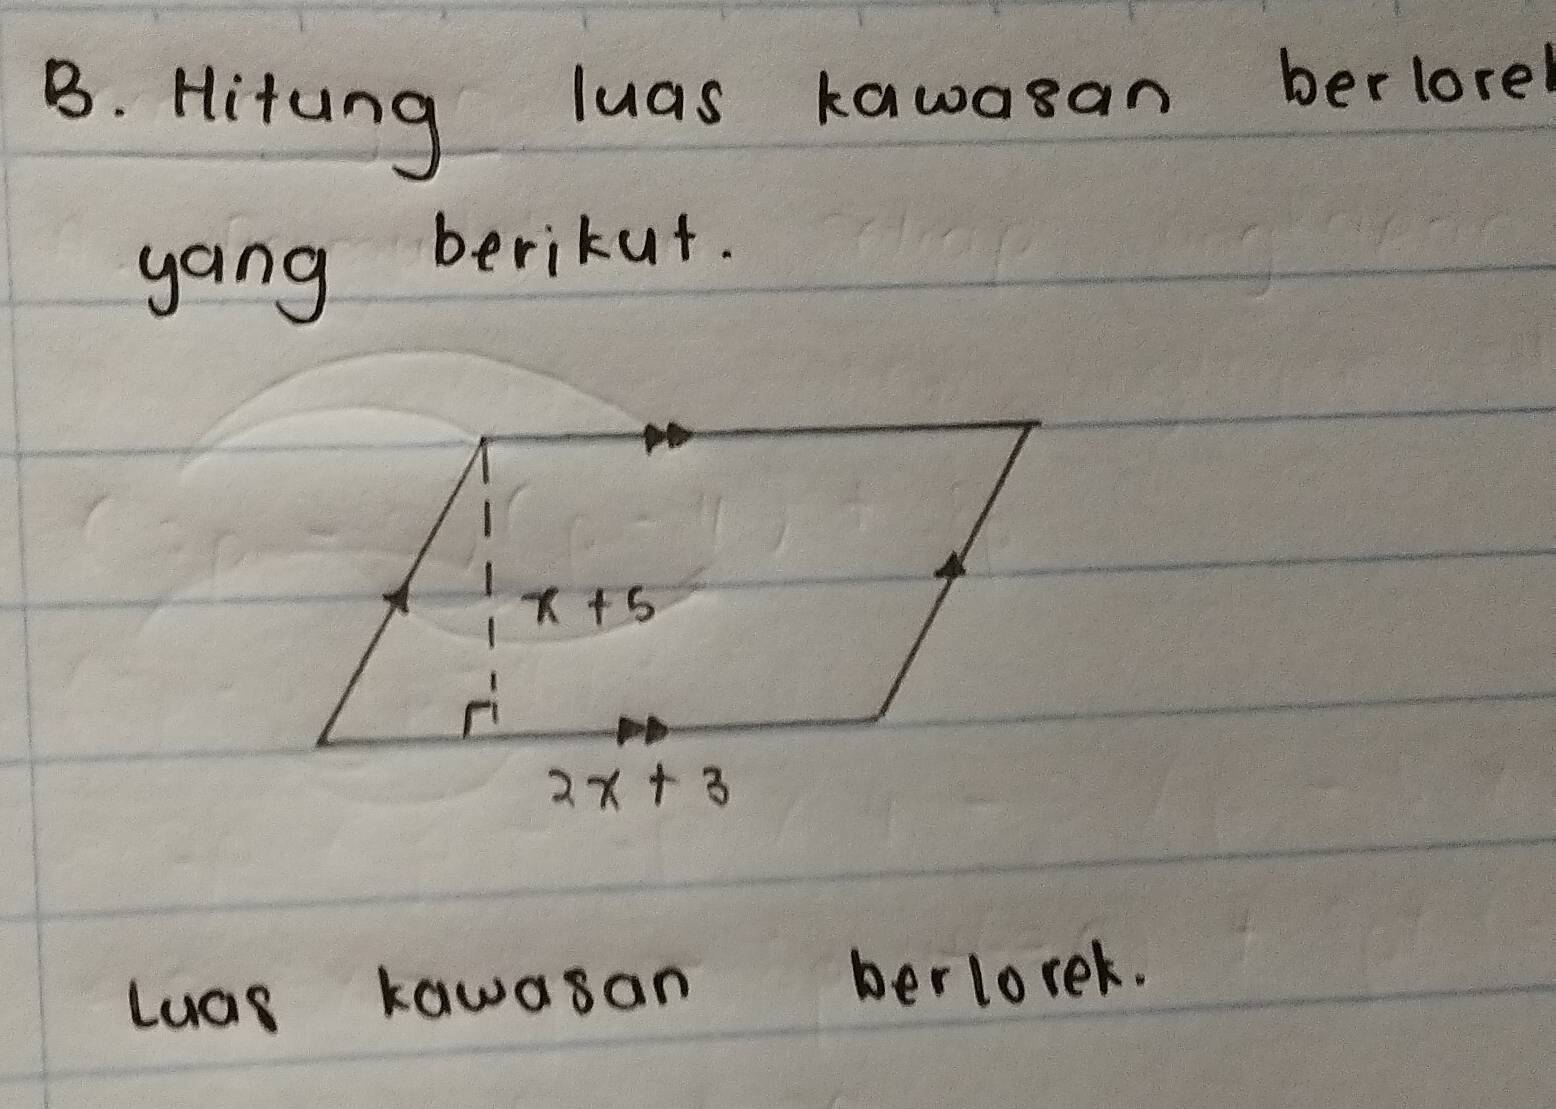 B. Hitung luas kawasan berlorek
yang berikut.
x + 5
2x + 3
Luas kawasan berlorek.